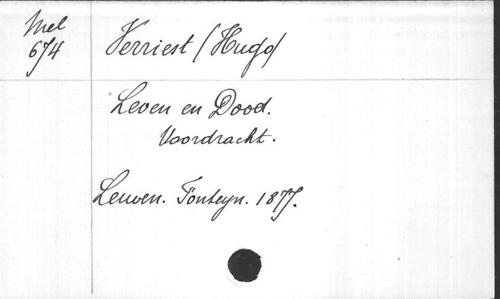 Mel
674
Verriest (Hugo)
Leven en Dood.
Voordracht.
Leuven. Fonteyn. 1877.